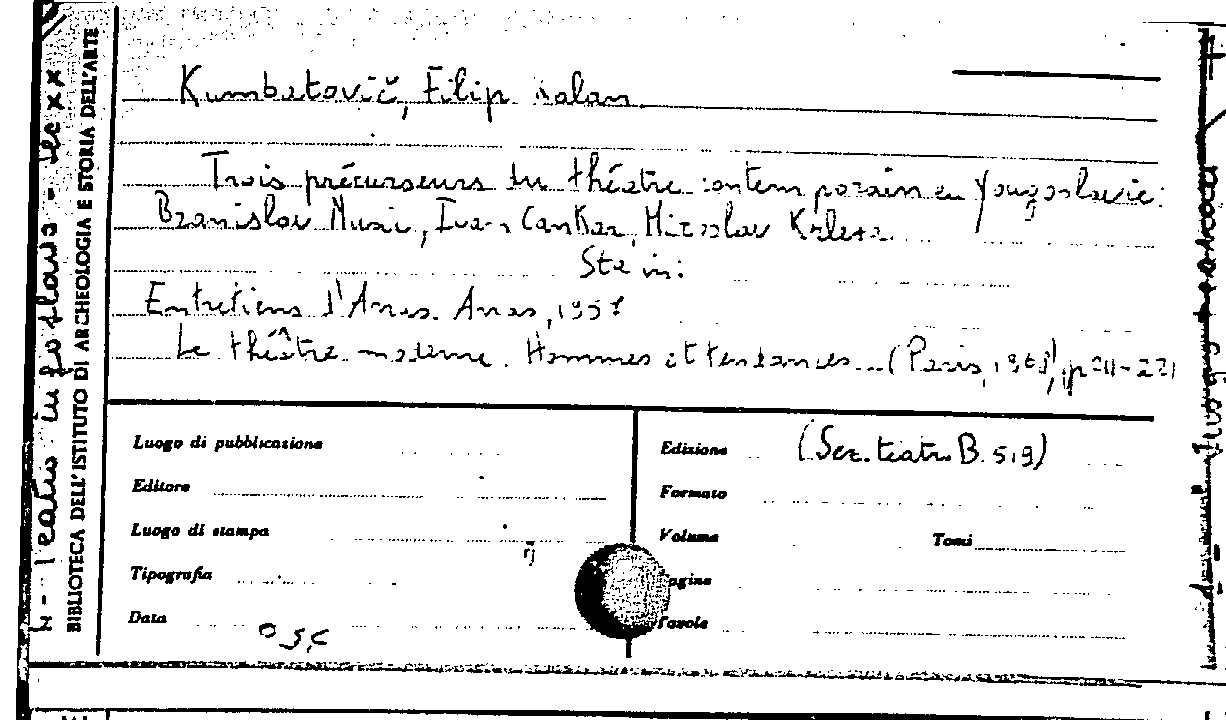 Kumbatovič, Filip Kalan
Trois précurseurs du théatre contemporain en Yougoslavie:
Branislav Nusic, Ivan Cankar, Miroslav Krleza
Sta in:
Entretiens d'Arras. Arras, 1957
Le théâtre moderne. Hommes et tendances... (Paris, p 211-221
Luogo di pubblicazione
Editore
Luogo di stampa
Tipografia
Data
Edizione (Sez. teatr. B. 519)
Formato
Volume Tomi
Pagine
Tavole
BIBLIOTECA DELL'ISTITUTO DI ARCHEOLOGIA E STORIA DELL'ARTE
Teatro in - sec XX